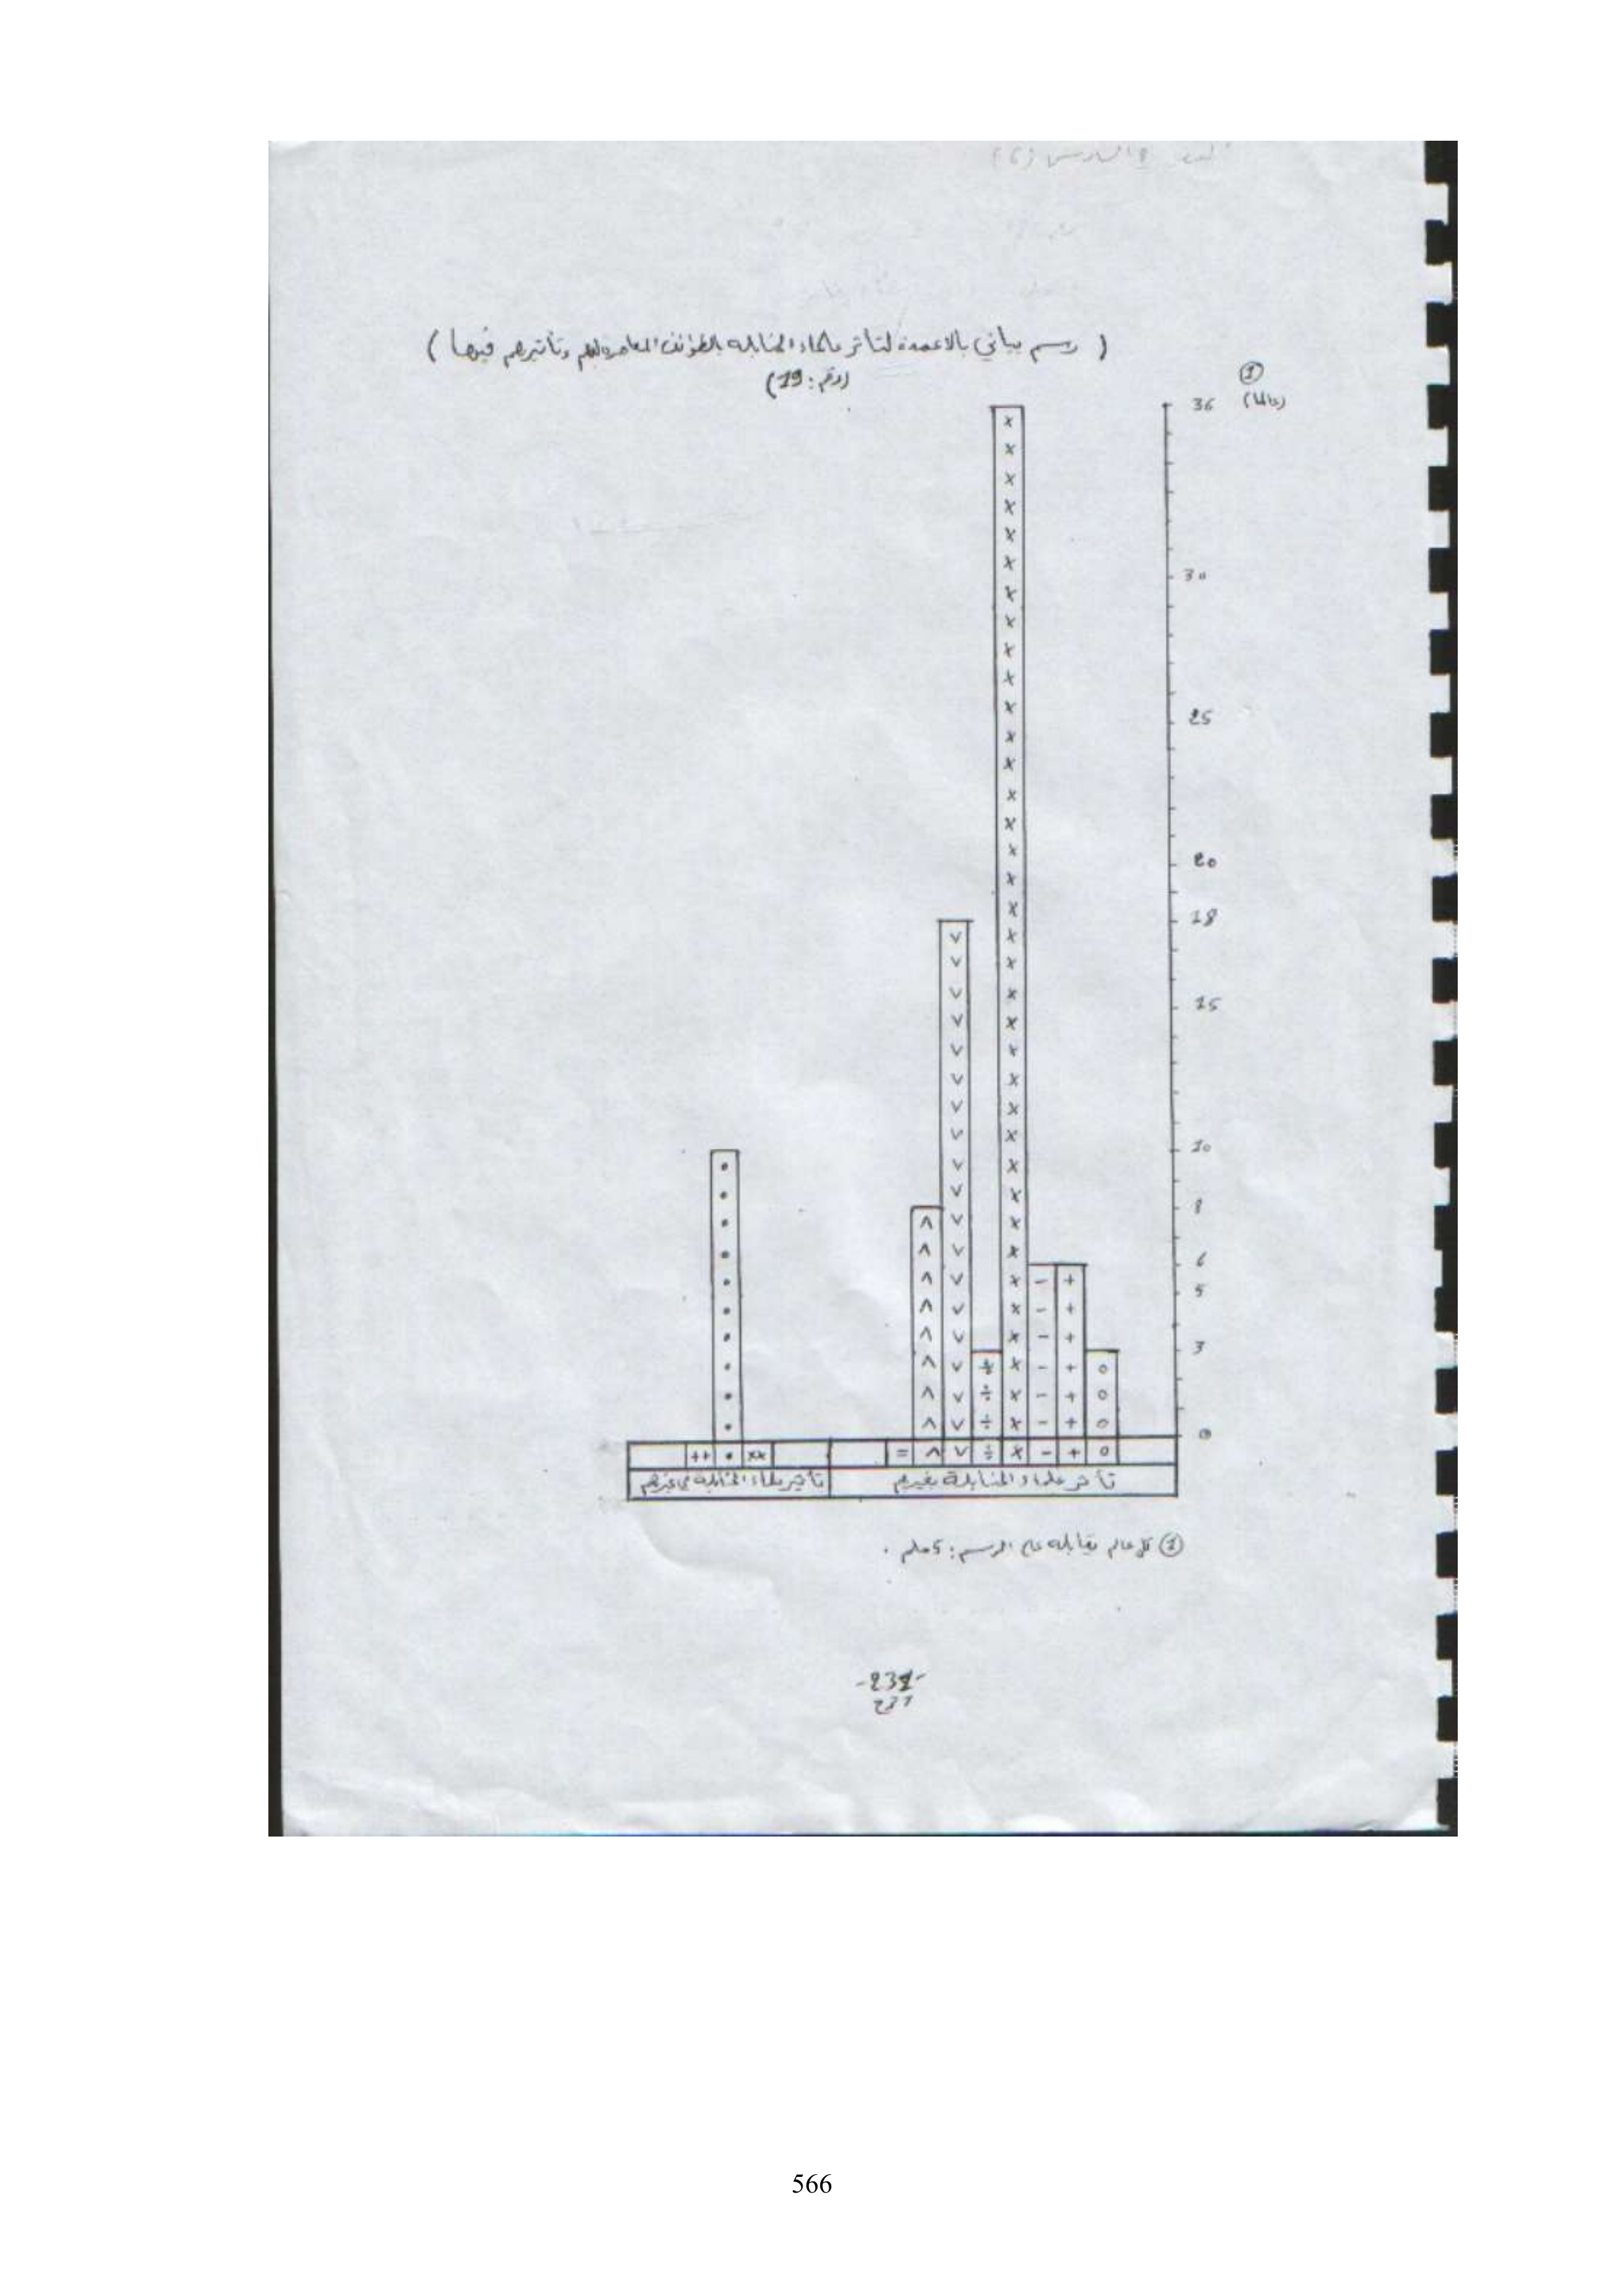 ( رسم بياني بالاعمدة لتأثر علماء الحنابلة بالطوائف المعاصرة لهم وتأثيرهم فيها )
(رقم: 19)
①
(عالما)
36
30
25
20
18
15
10
8
6
5
3
0
o + - × ÷ ∨ ∧ =
×× • ++
تأثر علماء الحنابلة بغيرهم
تأثير علماء الحنابلة في غيرهم
① كل عالم يقابله على الرسم: 5 ملم .
-232-
231
566